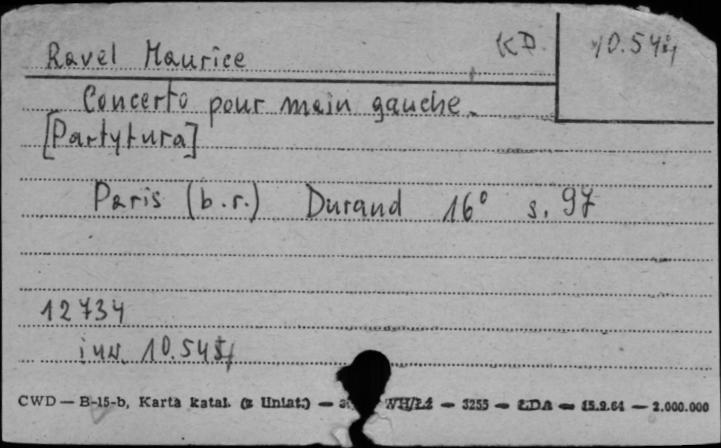 Ravel Maurice KD
Concerto pour main gauche.
[Partytura]
Paris (b.r.) Durand 16° s. 97
12734
inw.
CWD — B-15-b, Karta katal. (z Uniat.) — WH/Łź — 3255 — ŁDA — 15.9.64 — 2.000.000